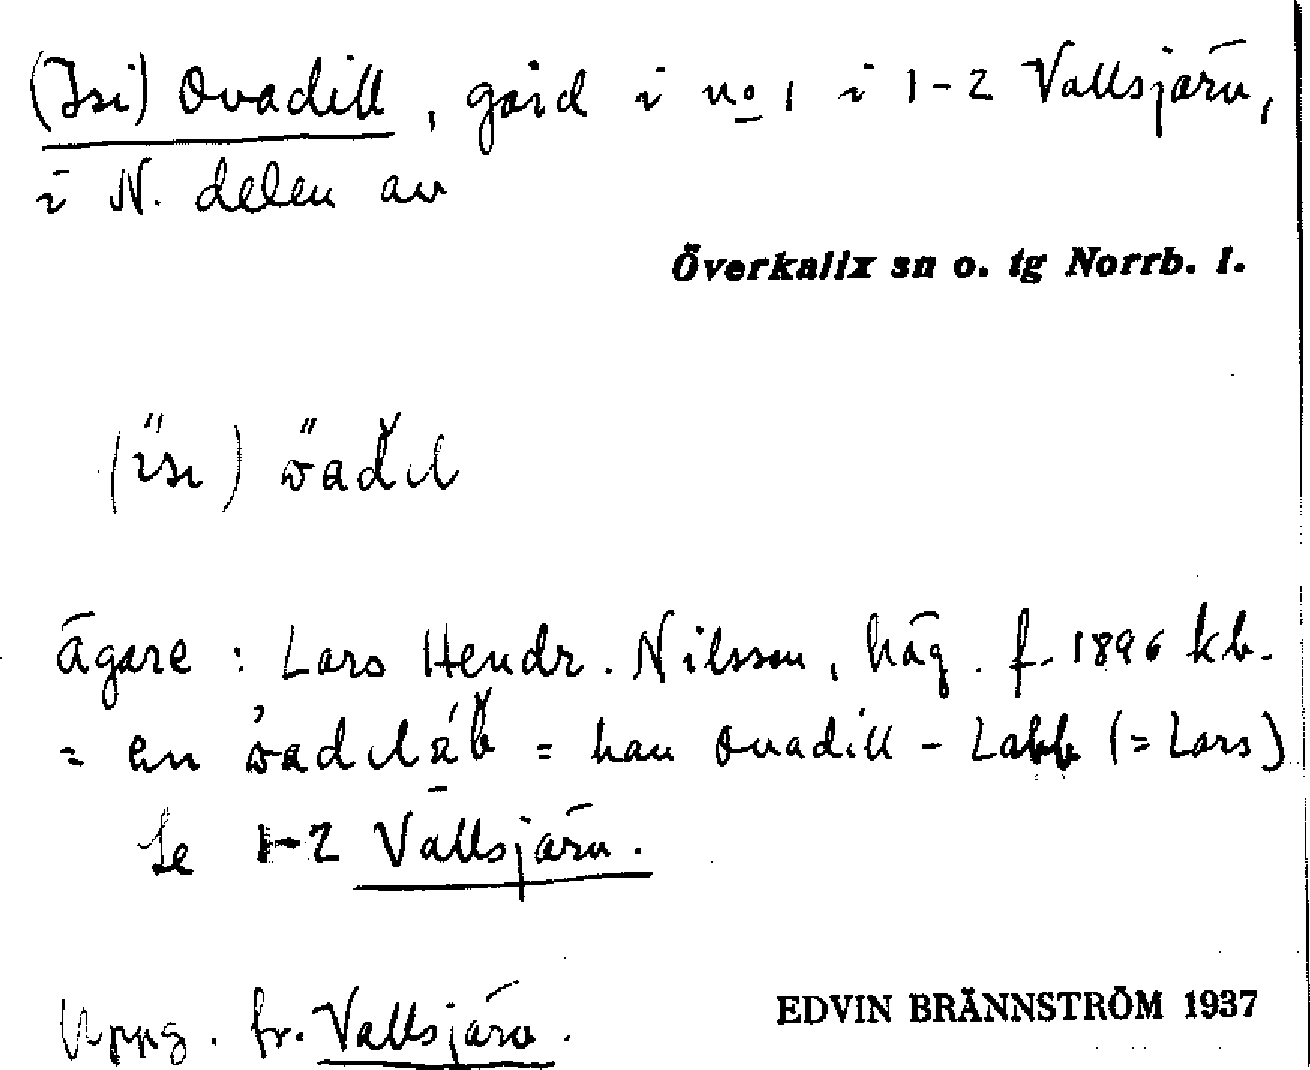 (Isi) Ovadill, gård i no 1 i 1-2 Vallsjärv,
i N. delen av
Överkalix sn o. tg Norrb. l.
Ägare : Lars Hendr. Nilsson, häg. f. 1896 kb.
= en = han Ovadill - Labb (= Lars)
Se 1-2 Vallsjärv.
Uppg. fr. Vallsjärv.
EDVIN BRÄNNSTRÖM 1937